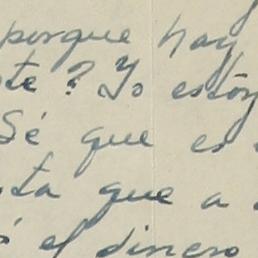 porque hay
te? Yo estoy
Sé que es
ta que a
el dinero